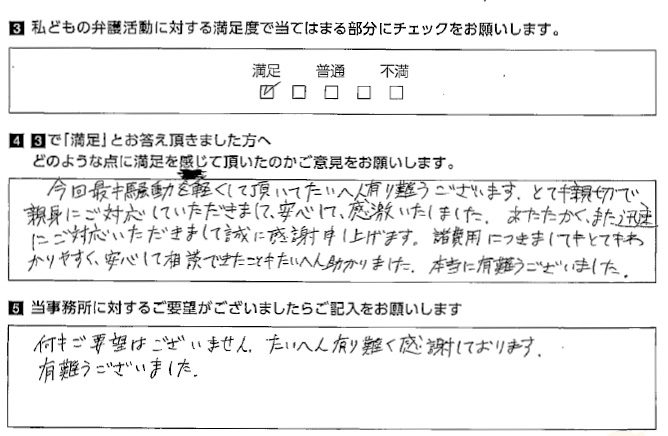 3 私どもの弁護活動に対する満足度で当てはまる部分にチェックをお願いします。
満足 普通 不満
☑ □ □ □ □
4 3で「満足」とお答え頂きました方へ
どのような点に満足を感じて頂いたのかご意見をお願いします。
今回最も 動を軽くして頂いてたいへん有り難うございます。とても親切で
親身にご対応していただきまして、安心して、感激いたしました。あたたかく、また迅速
にご対応いただきまして誠に感謝申し上げます。諸費用につきましてもとてもわ
かりやすく、安心して相談できたこともたいへん助かりました。本当に有難うございました。
5 当事務所に対するご要望がございましたらご記入をお願いします
何もご要望はございません。たいへん有り難く感謝しております。
有難うございました。